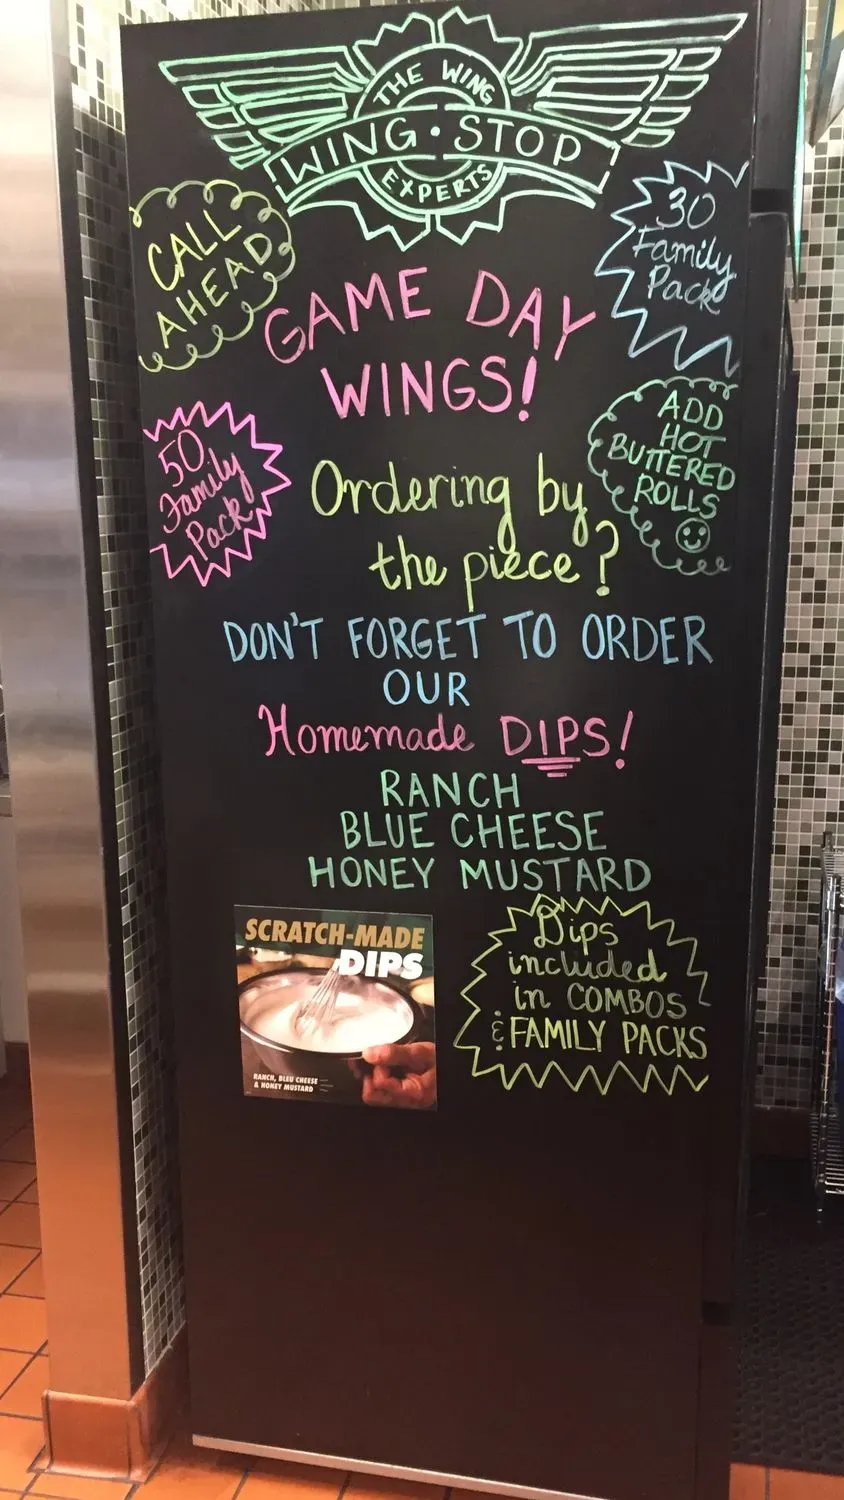 THE WING
WING · STOP
EXPERTS
CALL
AHEAD
30
Family
Pack
GAME DAY
WINGS!
50
Family
Pack
ADD
HOT
BUTTERED
ROLLS
Ordering by
the piece?
DON'T FORGET TO ORDER
OUR
Homemade DIPS!
RANCH
BLUE CHEESE
HONEY MUSTARD
SCRATCH-MADE
DIPS
RANCH, BLEU CHEESE
& HONEY MUSTARD
Dips
included
in COMBOS
& FAMILY PACKS